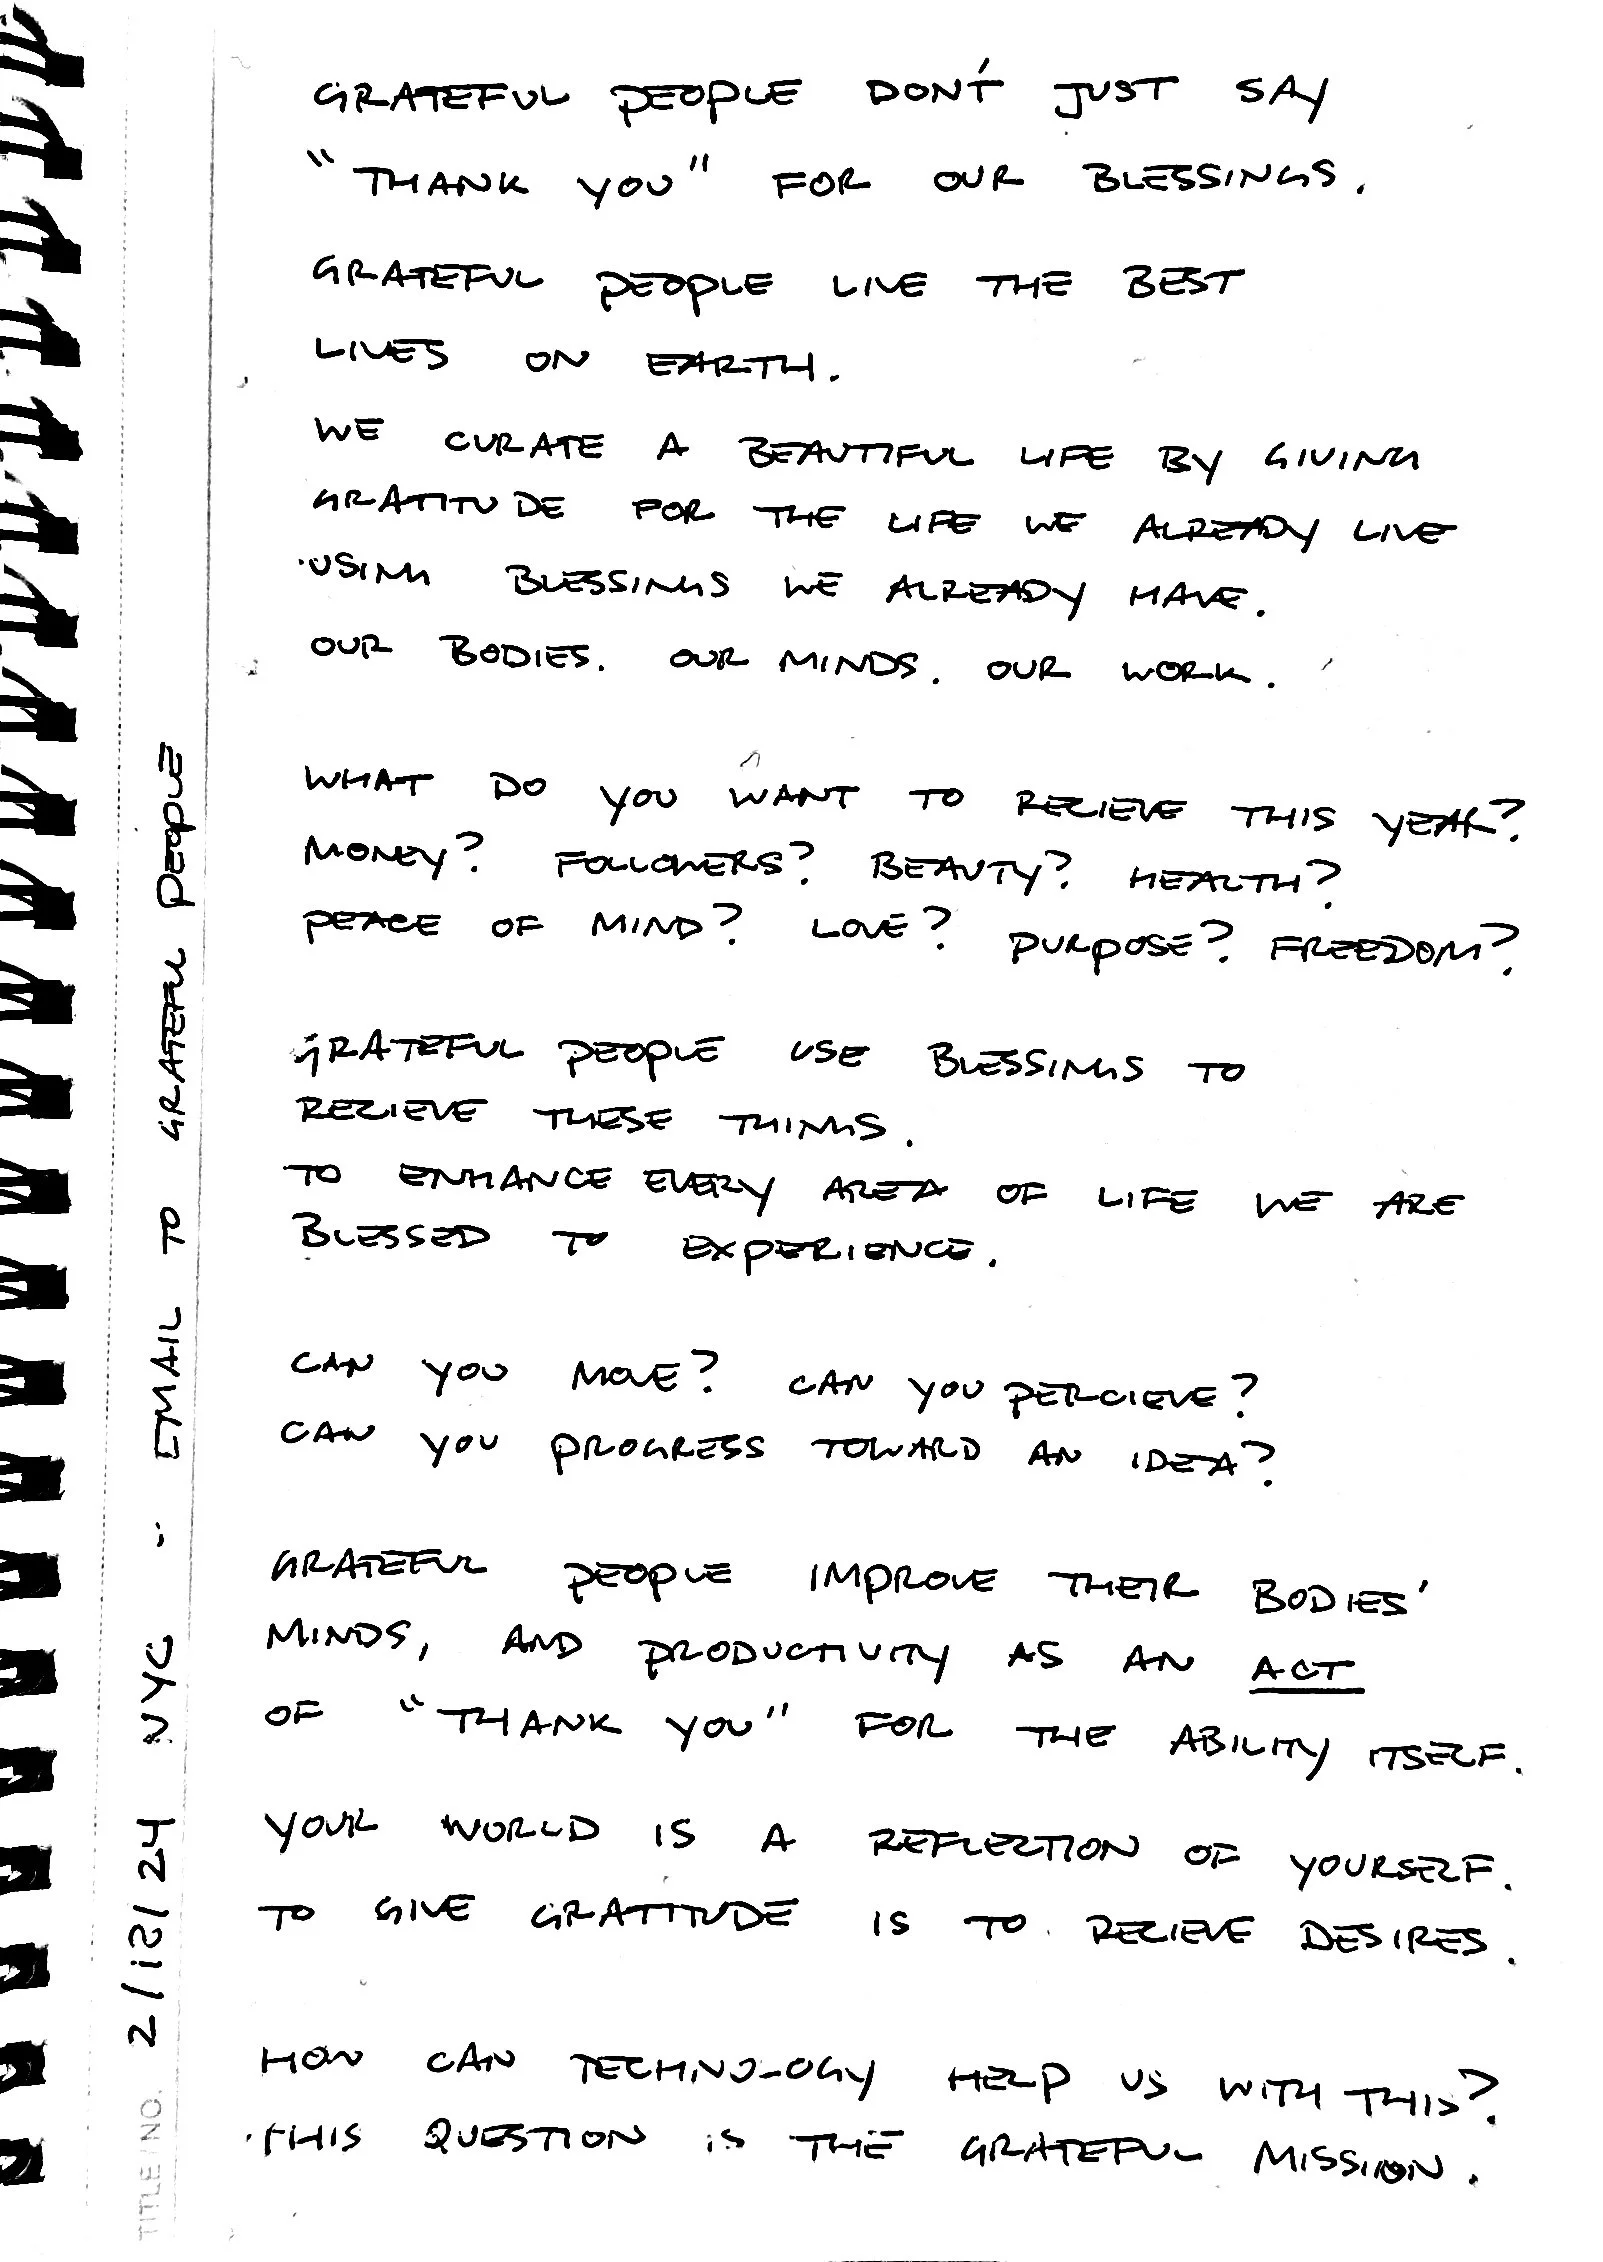 GRATEFUL PEOPLE DON'T JUST SAY
"THANK YOU" FOR OUR BLESSINGS.
GRATEFUL PEOPLE LIVE THE BEST
LIVES ON EARTH.
WE CURATE A BEAUTIFUL LIFE BY GIVING
GRATITUDE FOR THE LIFE WE ALREADY LIVE
USING BLESSINGS WE ALREADY HAVE.
OUR BODIES. OUR MINDS. OUR WORK.
WHAT DO YOU WANT TO RECIEVE THIS YEAR?
MONEY? FOLLOWERS? BEAUTY? HEALTH?
PEACE OF MIND? LOVE? PURPOSE? FREEDOM?
GRATEFUL PEOPLE USE BLESSINGS TO
RECIEVE THESE THINGS.
TO ENHANCE EVERY AREA OF LIFE WE ARE
BLESSED TO EXPERIENCE.
CAN YOU MOVE? CAN YOU PERCIEVE?
CAN YOU PROGRESS TOWARD AN IDEA?
GRATEFUL PEOPLE IMPROVE THEIR BODIES'
MINDS, AND PRODUCTIVITY AS AN ACT
OF "THANK YOU" FOR THE ABILITY ITSELF.
YOUR WORLD IS A REFLECTION OF YOURSELF.
TO GIVE GRATITUDE IS TO RECIEVE DESIRES.
HOW CAN TECHNOLOGY HELP US WITH THIS?
THIS QUESTION IS THE GRATEFUL MISSION.
TITLE / NO. 2/18/24 NYC - EMAIL TO GRATEFUL PEOPLE